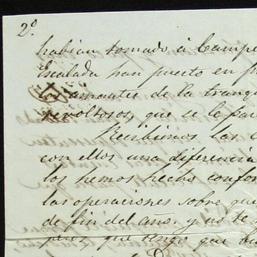 2º
habian tomado á Campe
Escalada han puesto en p
los amantes de la tranq
revoltosos, que se le pa
Recibimos las c
con ellos una diferencia
las hemos hecho confor
las operaciones sobre que
de fin del año. y no te
pero que tengo que ha